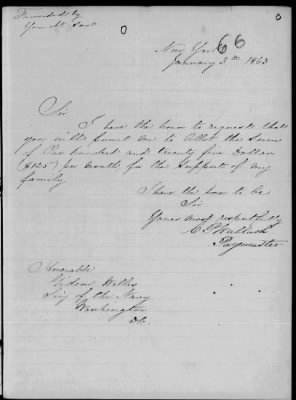 Forwarded by
Your Obt Servt
0
0
66
New York
January 3rd 1863
Sir
I have the honor to request that
you will permit me to Allot the Sum
of One hundred and twenty five Dollars
($125) per month for the support of my
family
I have the honor to be
Sir
Yours most respectfully
C P Wallach
Paymaster
Honorable
Gideon Welles
Secy of the Navy
Washington
DC.